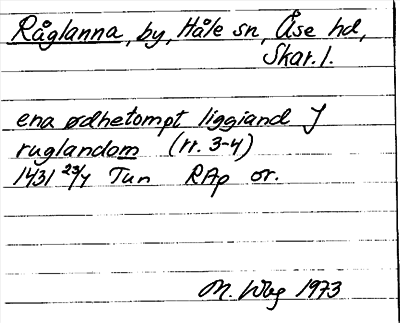 Råglanna, by, Håle sn, Åse hd,
Skar. l.
ena ødhetompt liggiand J
ruglandom (rr. 3-4)
1431 23/4 Tun RAp or.
M. Wbg 1973